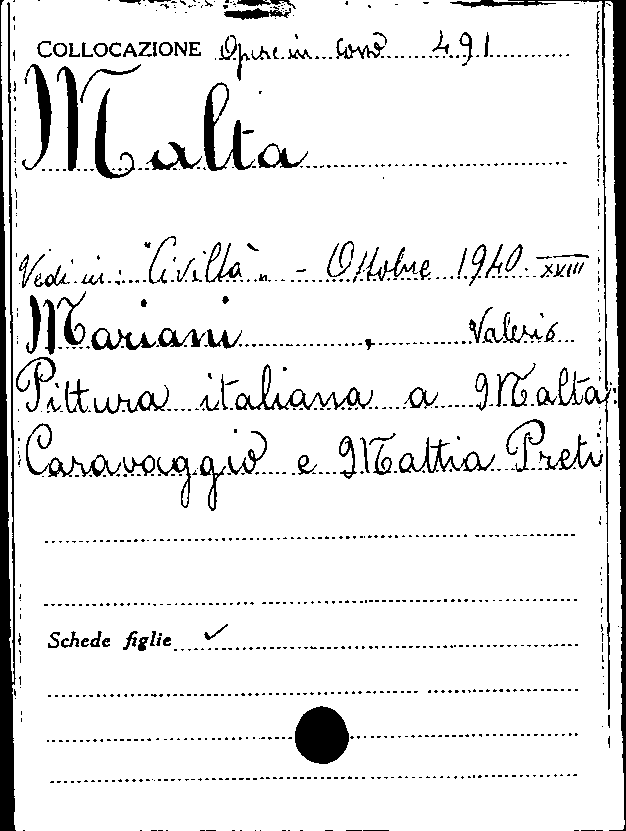 COLLOCAZIONE Opere in corso 491
Malta
Vedi in: "Civiltà" - Ottobre 1940. XVIII
Mariani, Valerio
Pittura italiana a Malta:
Caravaggio e Mattia Preti
Schede figlie ✓